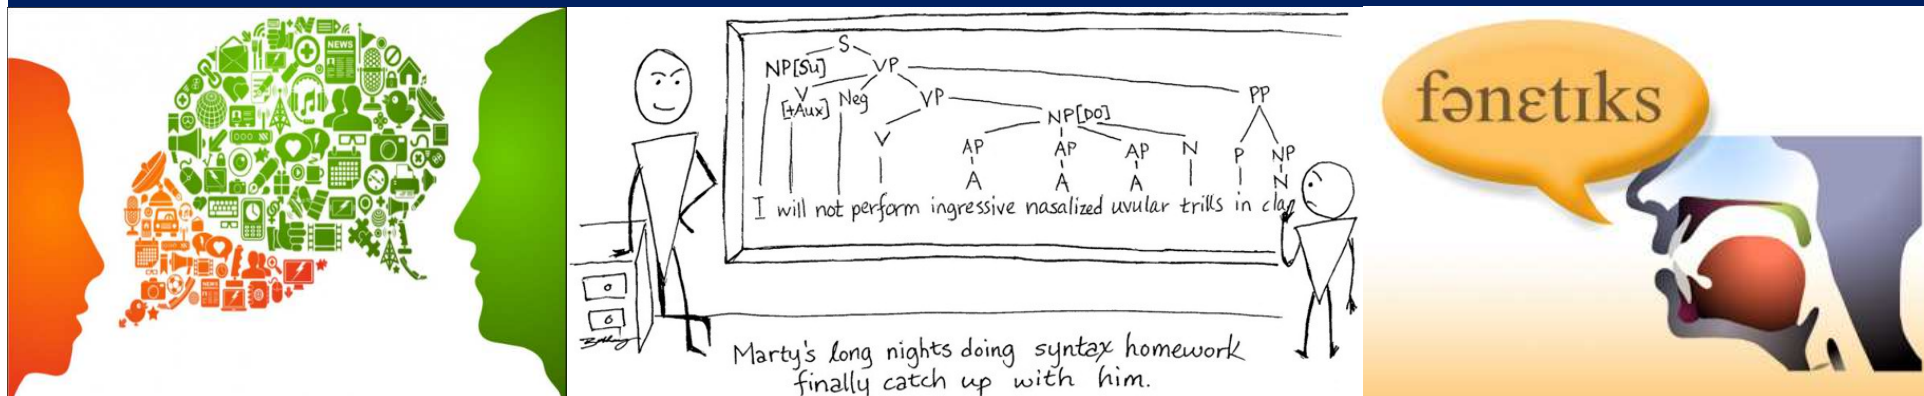 NEWS
NEWS
S
NP[Su] VP
V
[+Aux] Neg VP PP
NP[DO]
V AP AP AP N P NP
A A A N
I will not perform ingressive nasalized uvular trills in clas
Marty's long nights doing syntax homework
finally catch up with him.
fənɛtɪks